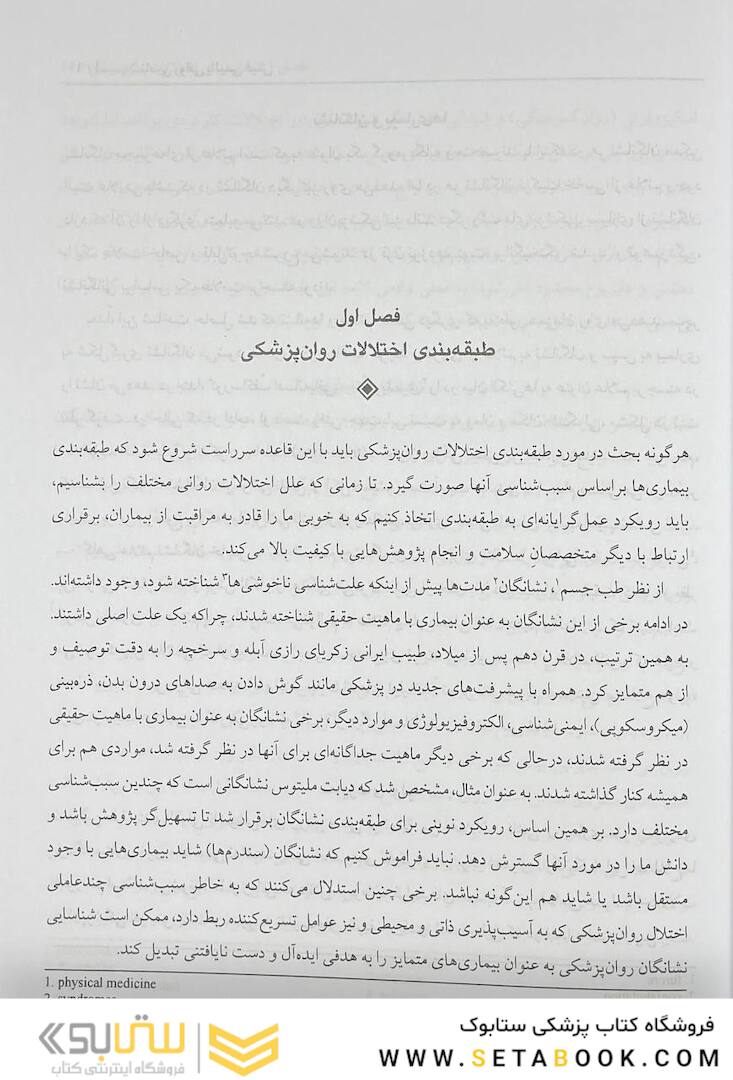 فصل اول
طبقه‌بندی اختلالات روان‌پزشکی
هرگونه بحث در مورد طبقه‌بندی اختلالات روان‌پزشکی باید با این قاعده سرراست شروع شود که طبقه‌بندی
بیماری‌ها براساس سبب‌شناسی آنها صورت گیرد. تا زمانی که علل اختلالات روانی مختلف را بشناسیم،
باید رویکرد عمل‌گرایانه‌ای به طبقه‌بندی اتخاذ کنیم که به خوبی ما را قادر به مراقبت از بیماران، برقراری
ارتباط با دیگر متخصصانِ سلامت و انجام پژوهش‌هایی با کیفیت بالا می‌کند.
از نظر طب جسم۱، نشانگان۲ مدت‌ها پیش از اینکه علت‌شناسی ناخوشی‌ها۳ شناخته شود، وجود داشته‌اند.
در ادامه برخی از این نشانگان به عنوان بیماری با ماهیت حقیقی شناخته شدند، چراکه یک علت اصلی داشتند.
به همین ترتیب، در قرن دهم پس از میلاد، طبیب ایرانی زکریای رازی آبله و سرخچه را به دقت توصیف و
از هم متمایز کرد. همراه با پیشرفت‌های جدید در پزشکی مانند گوش دادن به صداهای درون بدن، ذره‌بینی
(میکروسکوپی)، ایمنی‌شناسی، الکتروفیزیولوژی و موارد دیگر، برخی نشانگان به عنوان بیماری با ماهیت حقیقی
در نظر گرفته شدند، درحالی که برخی دیگر ماهیت جداگانه‌ای برای آنها در نظر گرفته شد، مواردی هم برای
همیشه کنار گذاشته شدند. به عنوان مثال، مشخص شد که دیابت ملیتوس نشانگانی است که چندین سبب‌شناسی
مختلف دارد. بر همین اساس، رویکرد نوینی برای طبقه‌بندی نشانگان برقرار شد تا تسهیل‌گر پژوهش باشد و
دانش ما را در مورد آنها گسترش دهد. نباید فراموش کنیم که نشانگان (سندرم‌ها) شاید بیماری‌هایی با وجود
مستقل باشد یا شاید هم این‌گونه نباشد. برخی چنین استدلال می‌کنند که به خاطر سبب‌شناسی چندعاملی
اختلال روان‌پزشکی که به آسیب‌پذیری ذاتی و محیطی و نیز عوامل تسریع‌کننده ربط دارد، ممکن است شناسایی
نشانگان روان‌پزشکی به عنوان بیماری‌های متمایز را به هدفی ایده‌آل و دست نایافتنی تبدیل کند.
1. physical medicine
2. syndromes
فروشگاه کتاب پزشکی ستابوک
WWW.SETABOOK.COM
ستابوک
فروشگاه اینترنتی کتاب